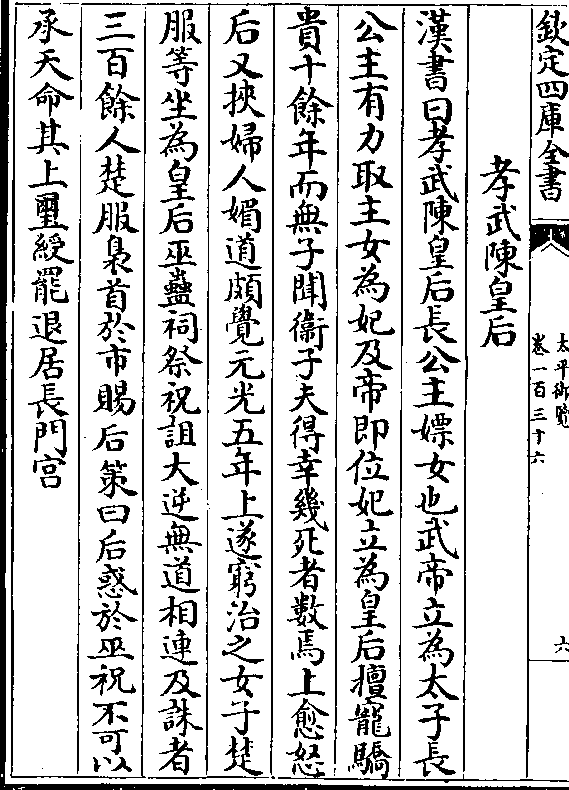 欽定四庫全書
太平御覽
卷一百三十六
六
孝武陳皇后
漢書曰孝武陳皇后長公主嫖女也武帝立為太子長
公主有力取主女為妃及帝即位妃立為皇后擅寵驕
貴十餘年而無子聞衞子夫得幸幾死者數焉上愈怒
后又挾婦人媚道頗覺元光五年上遂窮治之女子楚
服等坐為皇后巫蠱祠祭祝詛大逆無道相連及誅者
三百餘人楚服梟首於市賜后策曰后惑於巫祝不可以
承天命其上璽綬罷退居長門宫